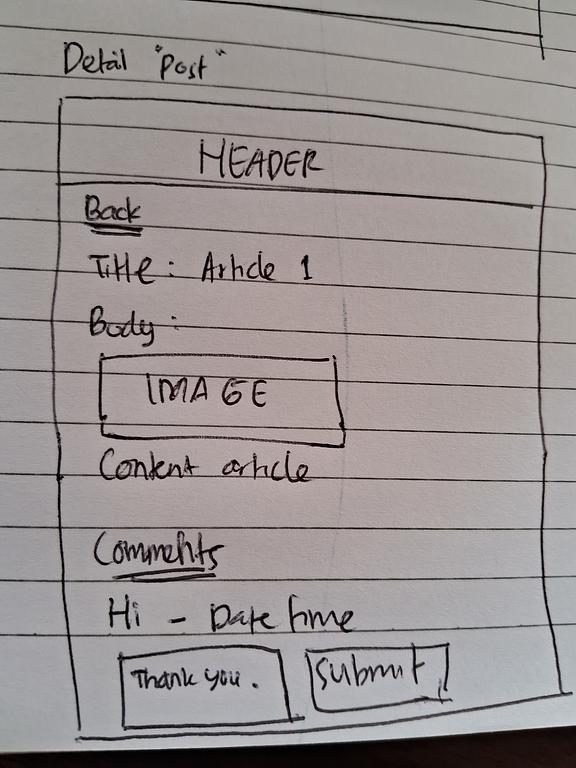 Detail "Post"
HEADER
Back
Title: Article 1
Body:
IMAGE
Content article
Comments
Hi - Date time
Thank you. Submit